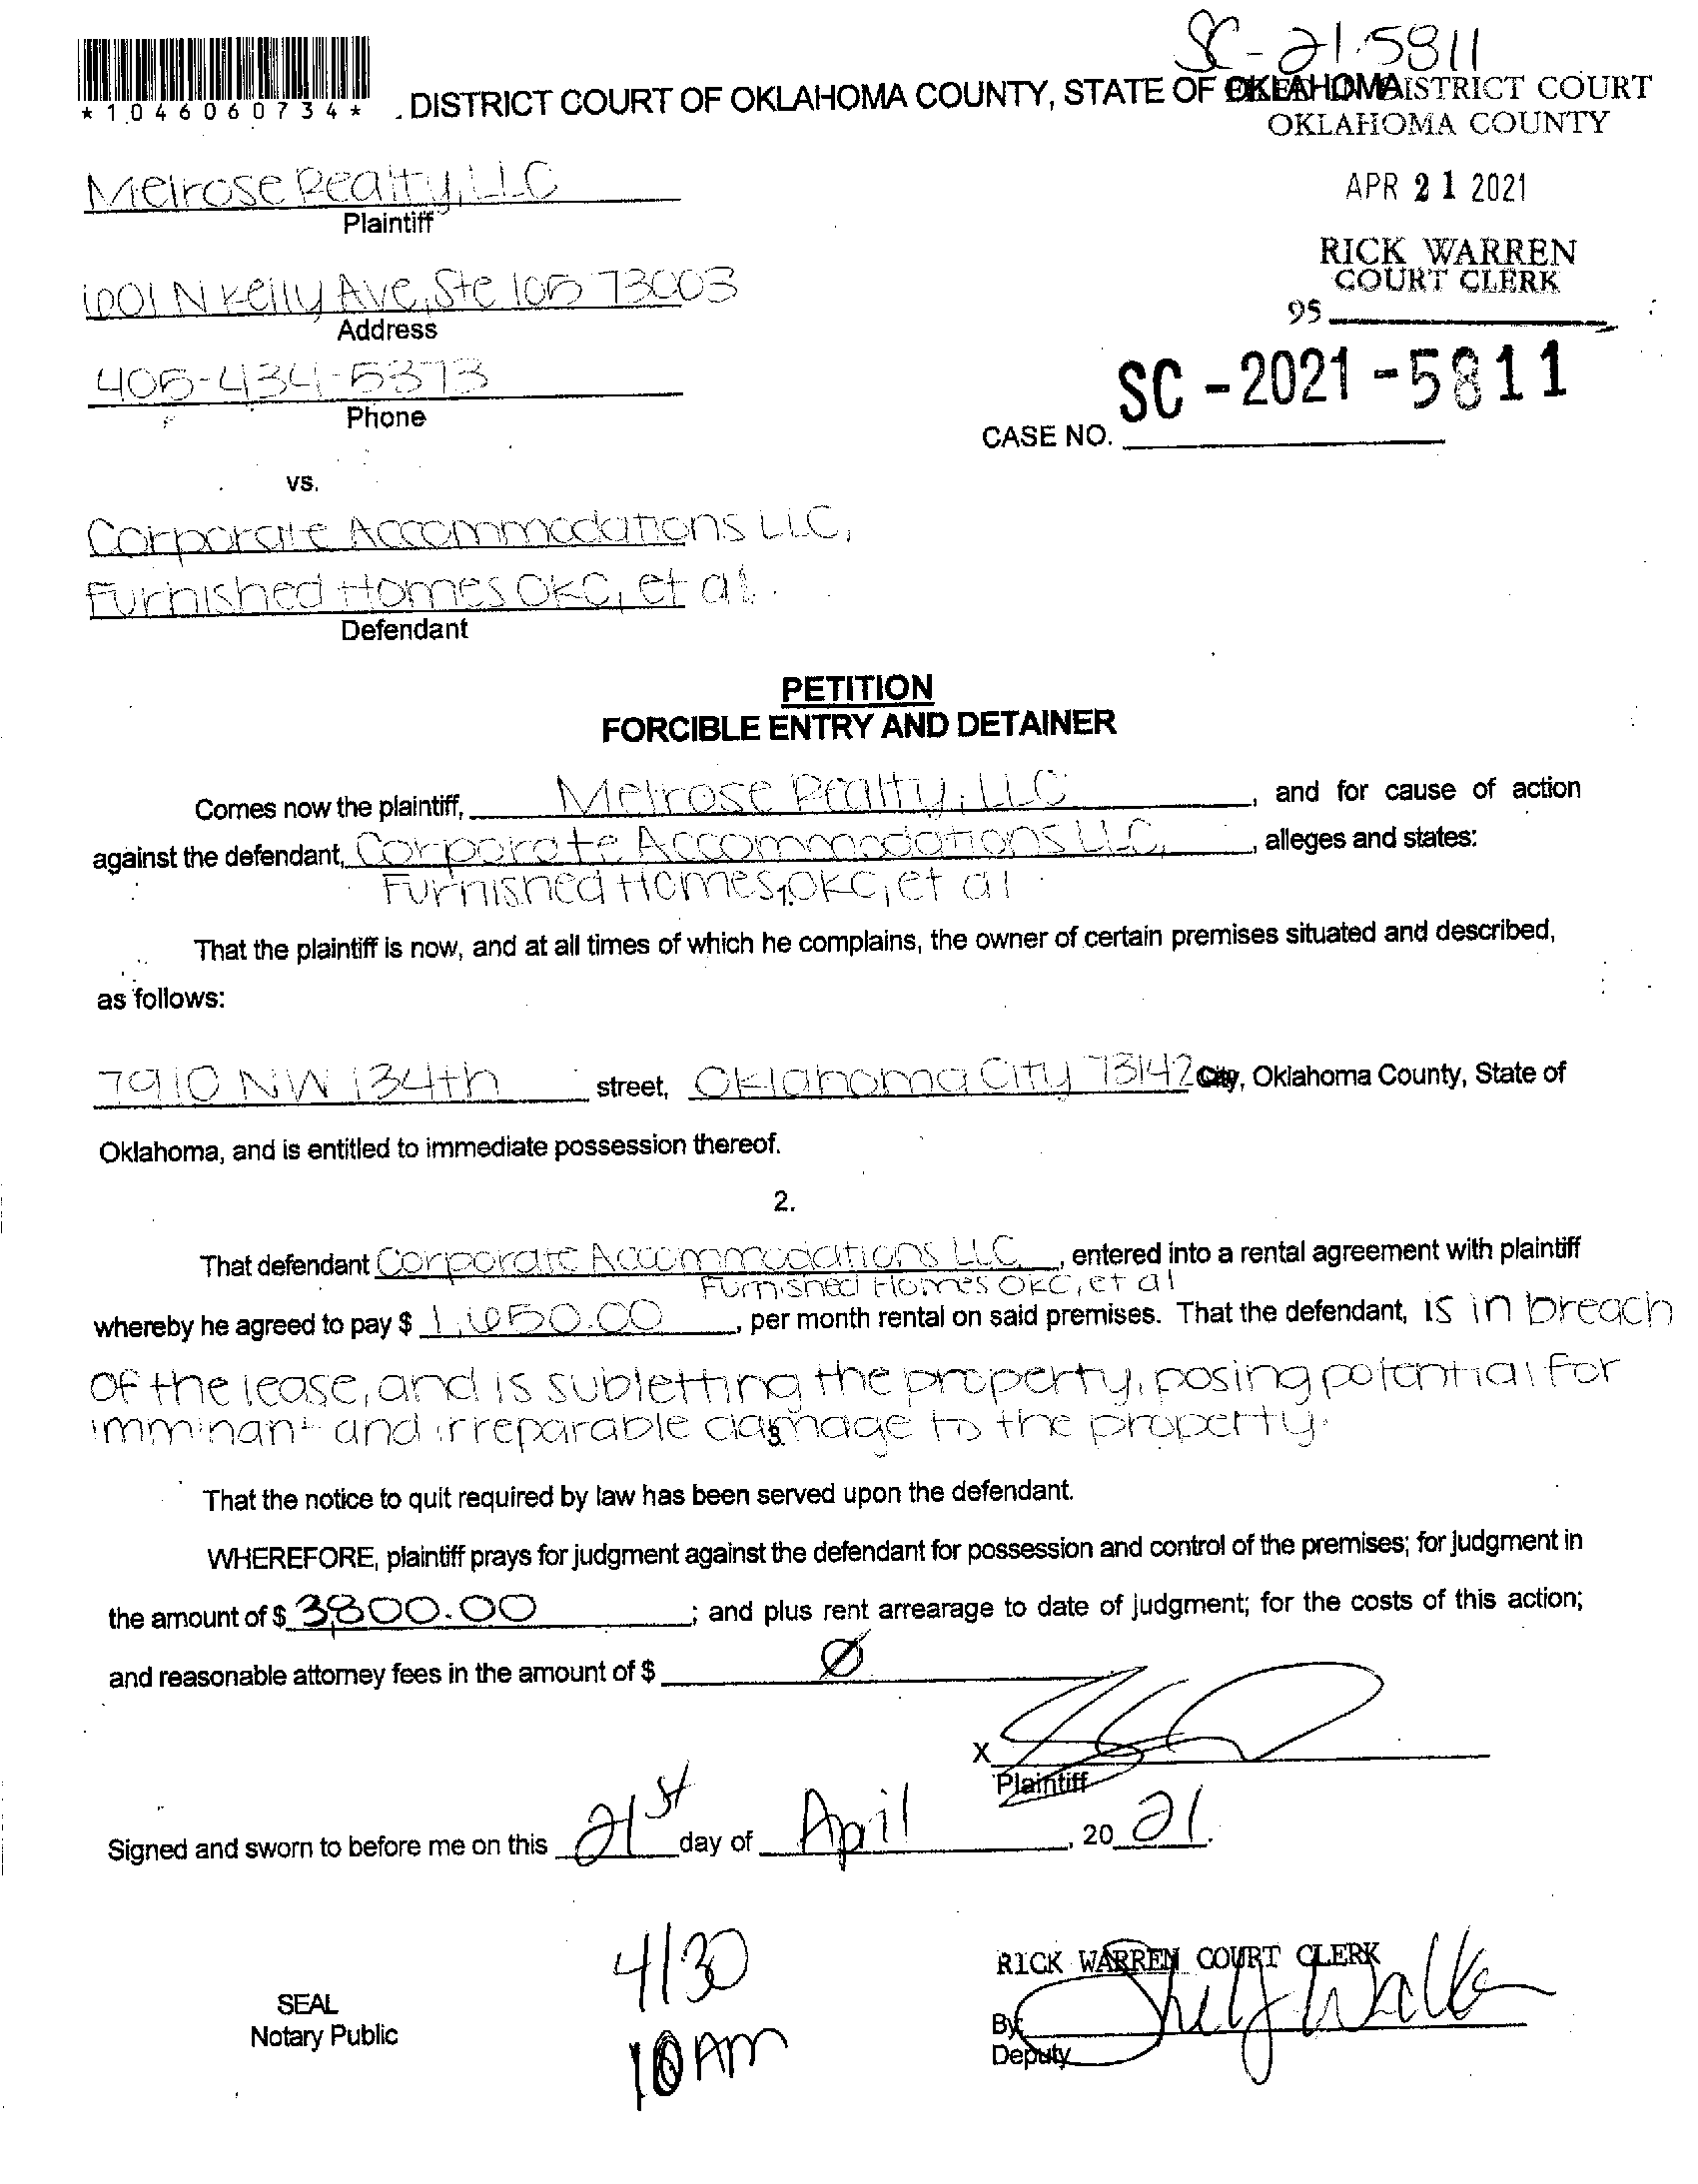 SC-21-5811
*1046060734*
DISTRICT COURT OF OKLAHOMA COUNTY, STATE OF OKLAHOMA
DISTRICT COURT
OKLAHOMA COUNTY
Melrose Realty, LLC
APR 21 2021
Plaintiff
RICK WARREN
COURT CLERK
1601 N Kelly Ave, Ste 105 73003
95
Address
405-434-5373
SC-2021-5811
Phone
CASE NO.
vs.
Corporate Accommodations LLC,
Furnished Homes OKC, et al.
Defendant
PETITION
FORCIBLE ENTRY AND DETAINER
Comes now the plaintiff, Melrose Realty, LLC, and for cause of action
against the defendant, Corporate Accommodations LLC, alleges and states:
Furnished Homes OKC, et al
1.
That the plaintiff is now, and at all times of which he complains, the owner of certain premises situated and described,
as follows:
7910 NW 134th street, Oklahoma City 73142 City, Oklahoma County, State of
Oklahoma, and is entitled to immediate possession thereof.
2.
That defendant Corporate Accommodations LLC, entered into a rental agreement with plaintiff
Furnished Homes OKC, et al
whereby he agreed to pay $ 1,650.00, per month rental on said premises. That the defendant, is in breach
of the lease, and is subletting the property, posing potential for
imminant and irreparable damage to the property.
3.
That the notice to quit required by law has been served upon the defendant.
WHEREFORE, plaintiff prays for judgment against the defendant for possession and control of the premises; for judgment in
the amount of $ 3,800.00; and plus rent arrearage to date of judgment; for the costs of this action;
and reasonable attorney fees in the amount of $ Ø
X
Plaintiff
Signed and sworn to before me on this 21st day of April, 2021.
4/30
10 AM
RICK WARREN COURT CLERK
SEAL
Notary Public
By
Deputy